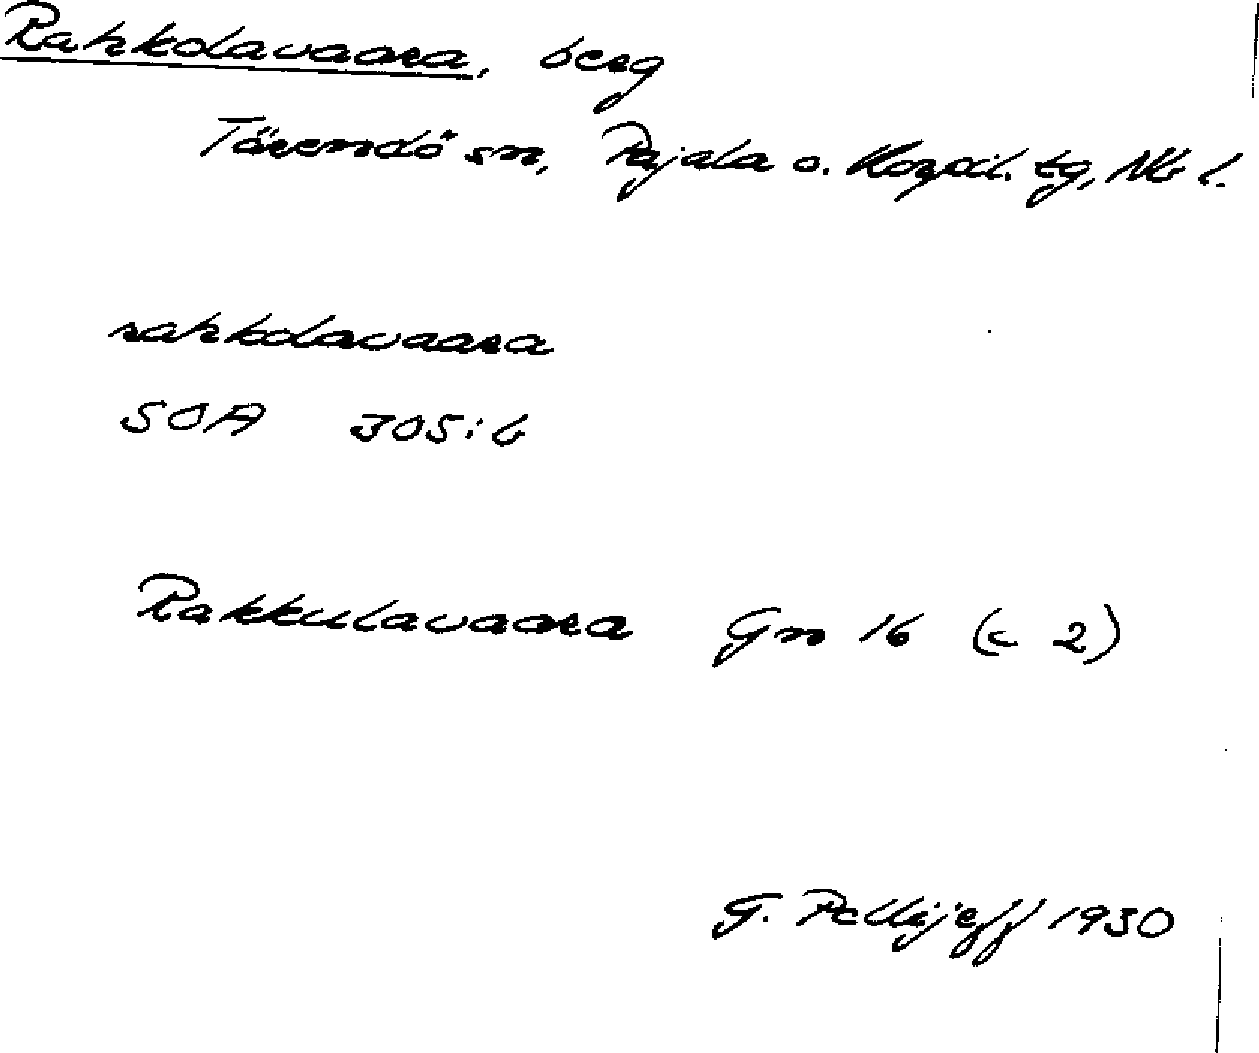 Rahkolavaara, berg
Tärendö sn, Pajala o. Korpil. tg, Nb l.
rahkolavaara
SOA 305:6
Rakkulavaara Gn 16 (c 2)
G. Pellijeff 1950